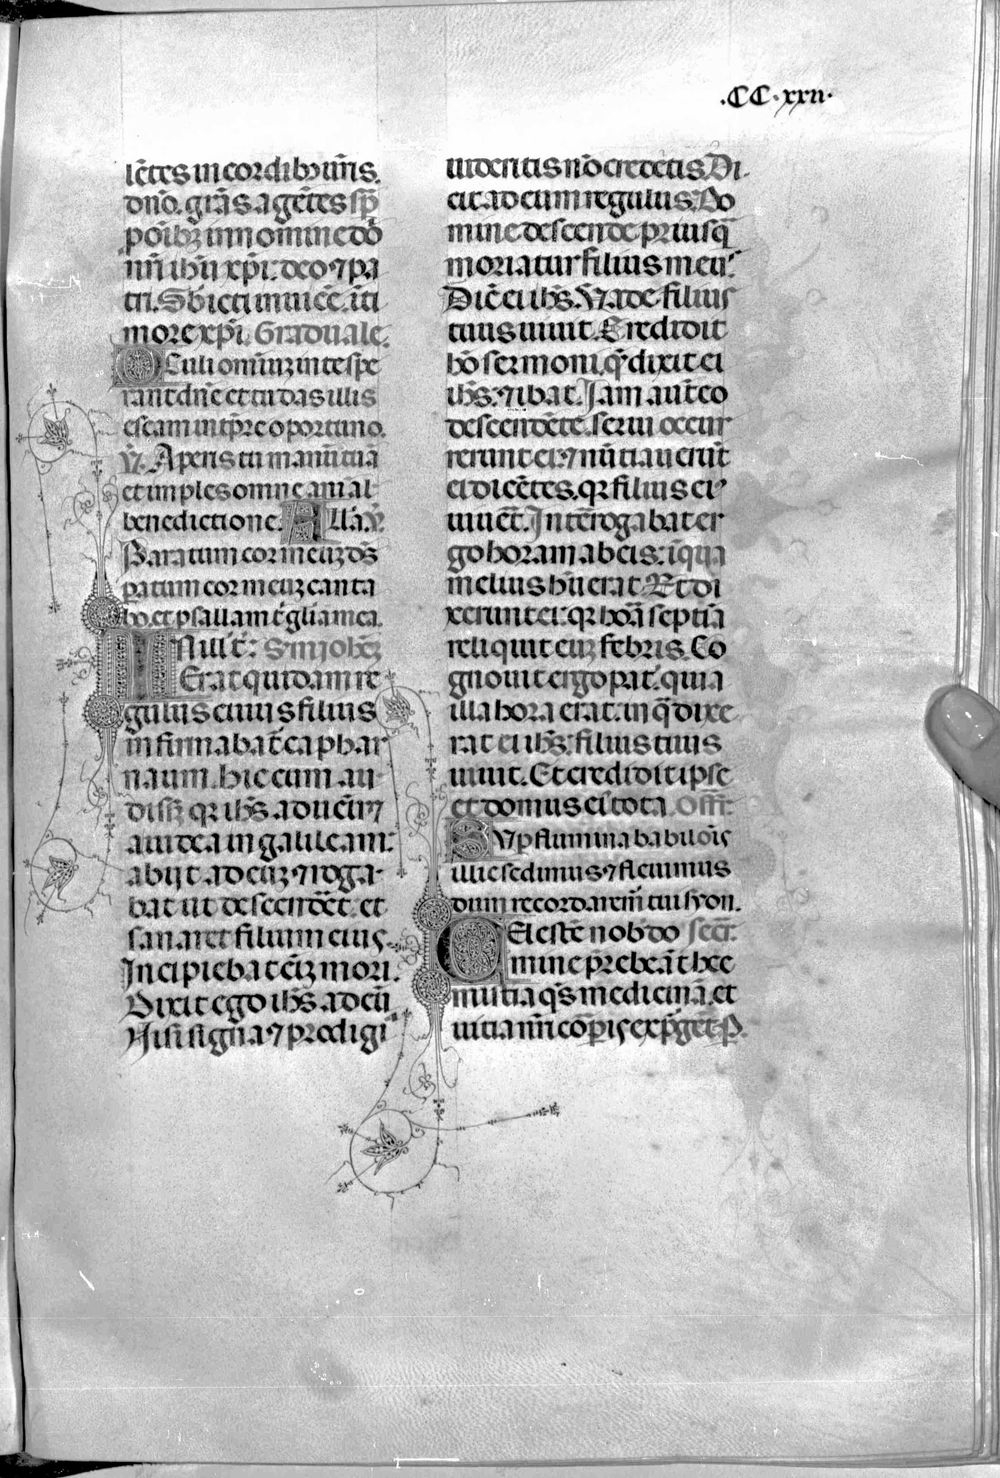 .CC.xxii.
lẽtes in cordibꝫ ur̃is.
dño. grãs agẽtes sp̃
po õibꝫ in nomine dõ
nr̃i ihũ xp̃i. deo ⁊ pa
tri. Sb̃iecti inuicẽ. ĩ ti
more xp̃i. Graduale.
Oculi om̃iuꝫ in te spe
rant dñe et tu das illis
escam in tp̃re oportuno.
℣. Aperis tu manũ tuã
et imples omne aĩal
benedictione. Alla. ℣.
Paratum cor meuꝫ ds̃
patum cor meuꝫ canta
bo. et psallam t̃ gl̃ia mea.
In ill̃ t̃: Sm̃ Joh̃eꝫ
Erat quidam re
gulus cuius filius
infirmabat̃ caphar
naum. hic cum au
disꝫ qꝛ ihs̃ adueir̃
a iudea in galileam:
abijt ad euꝫ ⁊ roga
bat ut descendẽt. et
sanaret filium eius.
Incipiebat eĩꝫ mori.
Dixit ego ihs̃ ad eũ
Nisi signa ⁊ prodigi
uideritis nõ credetis. Di
cit ad eum regulus. Do
mine descende priusq̃
moriatur filius meu᾿.
Dic̃ ei ihs̃. Vade filius
tuus uiuit. Credidit
hõ sermoni. q̃ dixit ei
ihs̃. ⁊ ibat. Jam aut̃ eo
descendẽte. serui occur
rerunt ei. ⁊ nũtiauerũt
ei dicẽtes. qꝛ filius ei᾿
uiuẽt. Int̃rogabat er
go horam ab eis. ĩ qua
melius hũerat. Et di
xerunt ei. qꝛ hõa septiã
reliquit euꝫ febris. Co
gnouit ergo pat̃. quia
illa hora erat. in q̃ dixe
rat ei ihs̃. filius tuus
uiuit. Et credidit ipse
et domus ei᾿ tota. Off̃:
Sup flumina babilõis
illic sedimus ⁊ fleuimus
dum recordarem̃ tui syon.
Celestẽ nob̃ do secr̃:
mine prebeãt hec
mũia q̃s medicinã. et
uitia nr̃i cordis exp̃gẽt P̱.